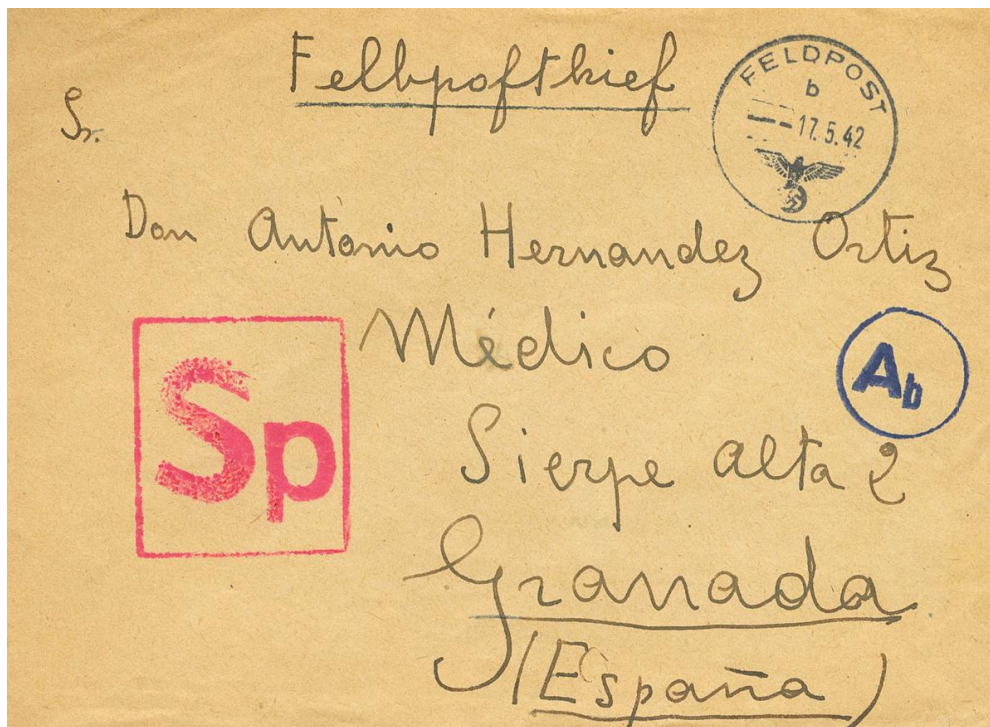 Felbpoftbrief
FELDPOST
b
17.5.42
Sr.
Don Antonio Hernandez Ortiz
Médico
Sp
Ab
Sierpe alta 2
Granada
(España)